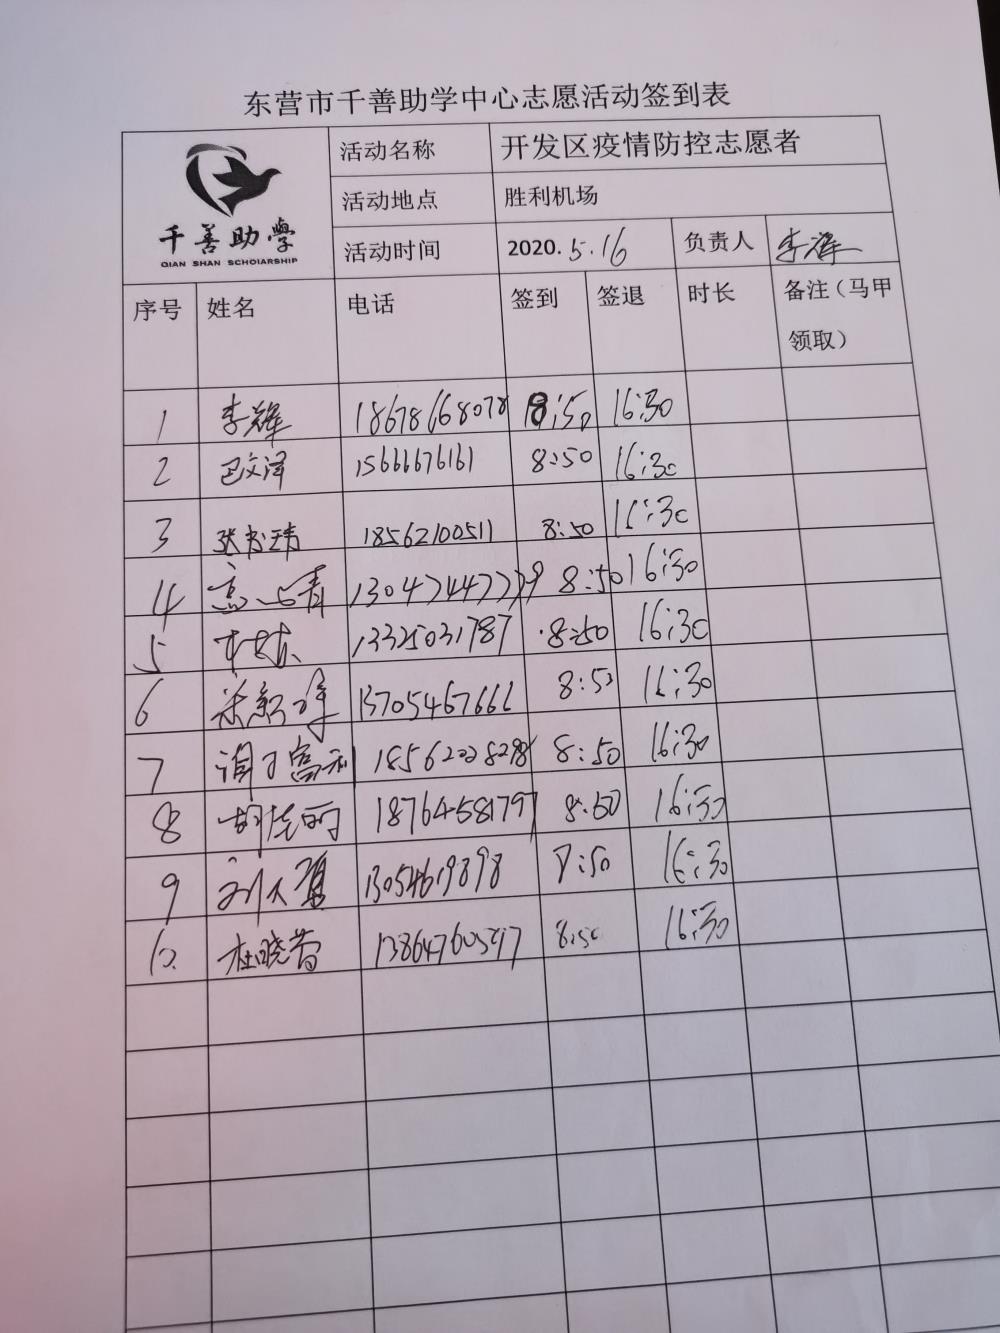 东营市千善助学中心志愿活动签到表
千善助学
QIAN SHAN SCHOlARSHIP
活动名称 开发区疫情防控志愿者
活动地点 胜利机场
活动时间 2020.5.16 负责人 李辉
序号 姓名 电话 签到 签退 时长 备注（马甲
领取）
1 李辉 18678668078 8:50 16:30
2 巴文泽 15666676161 8:50 16:30
3 18562100511 8:50 16:30
4 8:50 16:30
5 13325031787 8:50 16:30
6 13705467666 8:50 16:30
7 8:50 16:30
8 18764581797 8:50 16:30
9 13054619898 8:50 16:30
10. 杜晓菁 13864760597 8:50 16:30